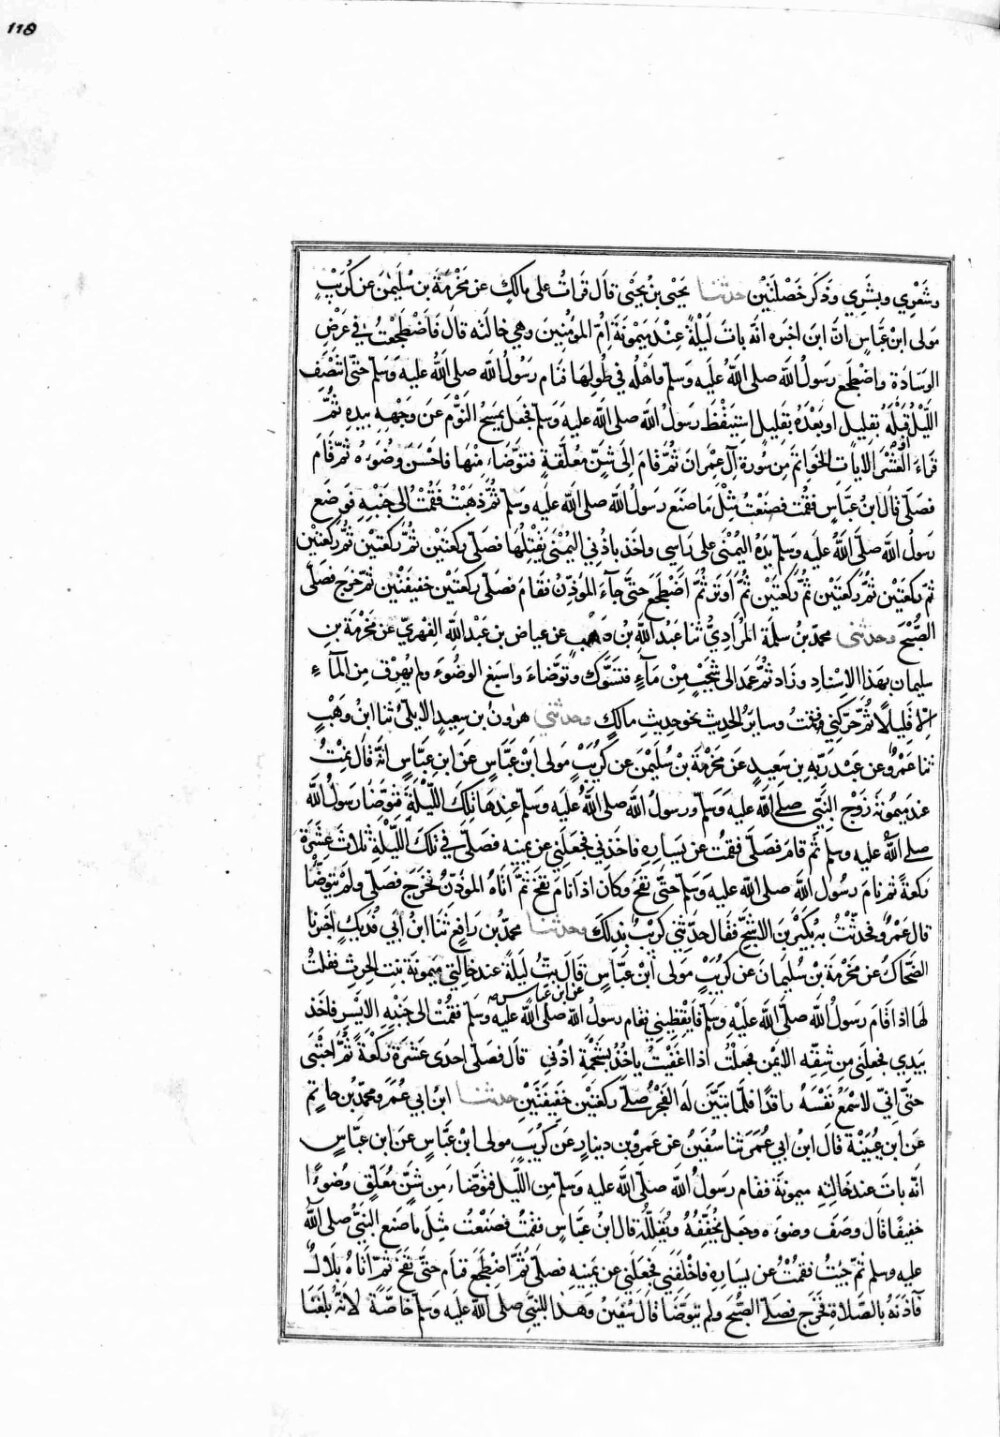 118
وشَعْرِي وبَشَرِي وذَكَرَ خَصْلَتَيْن حدثنا يَحْيَى بنُ يَحْيَى قال قراتُ على مالكٍ عن مَخْرَمَةَ بن سُلَيْمٰنَ عن كُرَيْبٍ
مَولى ابن عَبَّاسٍ انَّ ابن اخبره انّه باتَ لَيْلَةً عِنْدَ مَيْمُونَةَ اُمِّ المؤمِنِينَ وهي خالَتُه قالَ فَاضْطَجَعْتُ في عَرْضِ
الوِسَادَةِ واضطَجع رسولُ الله صلى اللهُ عليه وسلم وَاهْلُه في طُولِها فنام رَسُولُ الله صلى اللهُ عليه وَسَلم حتّى انتَصَف
اللَّيْلُ اوقَبْلَهُ بقليلٍ اوبَعْدَهُ بقليلٍ استيقظَ رسولُ الله صلى الله عليه وَسَلم فجعل يمسحُ النَّوْمَ عَن وَجْهِهِ بيدِه ثُمَّ
قراءَ العَشْرَ الايات الخواتمَ مِن سُورةِ آلِ عِمْرانَ ثُمَّ قامَ الى شَنٍّ مُعَلَّقَةٍ فتوضّاَء منْها فاحْسَنَ وُضُوءَه ثمّ قامَ
فصَلّى قال ابنُ عبَّاسٍ فقُمت فصنعْتُ مِثْلَ مَا صَنَع رَسولُ الله صلى الله عليه وسلم ثُمّ ذهَبْتُ فقُمْتُ الى جَنْبِه فوضَع
رسولُ الله صلّى اللهُ عليه وسلّم يدَهُ اليُمْنَى على رَاسِي واخَذ باذُنِي اليُمْنَى يَفْتِلُها فصلّى رَكعَتَيْن ثمَّ ركعَتيْن ثمَّ ركعَتَيْن
ثمّ ركعَتيْن ثمَّ ركعَتَيْن ثمَّ ركعَتَيْن ثُمَّ اوتَرَ ثُمَّ اضْطَجَع حتَّى جآءَ المؤَذِّن فقام فصلّى ركعتَيْن خفيفَتْين ثمّ خرج فصَلّى
الصُّبْحَ وحدثني محمّد بن سلمَة المُرَادِيُّ ثنا عَبْدُ اللهِ بن وَهْبٍ عن عياض بن عَبْدِ اللهِ الفِهْرِيّ عن مَخْرَمَة بنِ
سليمان بهَذا الاِسْنادِ وزَاد ثمَّ عمَد الى شَجْبٍ مِنْ مآءٍ فتسَوَّكَ وتوضّاءَ واسبَغ الوضُوءَ ولم يُهرِق مِن المآءِ
الاّ قليلًا ثُمَّ حرّكَنِي فقمتُ وسائرُ الحديث نحوحديثِ مالكٍ وحدثني هرُونُ بن سعِيدٍ الاَيليُّ ثنا ابنُ وَهْبٍ
ثنا عَمْرٌو عن عَبْدِ رَبّهِ بن سعيدٍ عن مَخْرَمَةَ بن سُلَيْمٰن عن كُريْبٍ مَولى ابن عَبّاسٍ عن ابن عبَّاسٍ انّه قال نِمْتُ
عند ميمُونَةَ زَوْجِ النَّبِيّ صلى الله عليه وَسلم ورسولُ الله صلى اللهُ عليه وسلم عندَها تلك اللّيْلَةِ فتوضَّا رسولُ الله
صلى الله عليه وسلم ثمّ قامَ فصَلّى فقمتُ عن يسارِه فاخَذنِي فجعلنِي عن يمينِه فصَلّى في تلكَ اللّيْلَةِ ثلاثَ عشَرَةَ
ركعةً ثم نامَ رسولُ الله صلى الله عليه وسلم حتَّى نفَخَ وكان اذا نامَ نفَخَ ثمّ اتاهُ المؤذّن فخرَج فصَلّى ولم يتوضّا
قال عَمْرٌو فحدّثتُ بهِ بُكَيْرَ بن الاشجِّ فقال حدّثني كريْبٌ بذلكَ وحدثنا محمّد بن رَافِعٍ ثنا ابنُ ابي فُدَيكٍ اخبرنا
الضّحاك عن مَخْرَمَة بن سُليمانَ عن كريْبٍ مَولى ابن عبّاسٍ عن ابن عباس قال بتُّ ليلةً عند خالتِي ميمونَة بنت الحرث فقلتُ
لها اذا قام رسولُ الله صلى الله عليْه وسَلم فايقِظِينِي فقام رسولُ الله صلى الله عليه وسلم فقمْتُ الى جَنْبِهِ الايْسَرِ فاخذ
بيدِي فجعلَنِي من شِقِّه الايْمَن فجعَلْتُ اذا اغفَيْتُ ياخُذُ بشَحْمةِ اذُنِي قال فصَلّى احدى عشَرَة ركعَةً ثمَّ احْتَبَى
حتَّى انّي لاسْمَعُ نفَسَهُ راقدًا فلمّا تبيَّن لَه الفَجْرُ صلّى ركعَتيْن خفِيفَتَيْنِ حدثنا ابنُ ابي عُمَر ومحمّد بن حاتمٍ
عن ابن عُيَيْنَة قال ابنُ ابي عُمَر ثنا سُفينُ عن عمرو بن دينارٍ عن كريْبٍ مولى ابن عبَّاسٍ عن ابن عبّاسٍ
انّه بات عند خالتِه ميمونَة فقام رسُولُ الله صلّى الله عليه وسلم مِن اللّيل فتوضّاَء مِن شنٍّ معَلّقٍ وضُوءًا
خفيفًا قال وصَفَ وضوءَه وجعَل يُخَفّفُهُ ويُقَلّلُه قال ابنُ عبّاسٍ فقمتُ فصنعتُ مثلَ ماصَنع النبيُّ صلى الله
عليه وسلم ثمّ جئتُ فقمتُ عن يسارِه فاخلَفَنِي فجعلَنِي عن يمينِهِ فصلّى ثُمّ اضْطجَع فنام حتَّى نفَخَ ثمّ اتاهُ بلالٌ
فآذنَهُ بالصّلاةِ فخَرج فصلّى الصُّبحَ ولم يتوضّا قال سُفينُ وهذا للنّبيّ صلى الله عليه وسلم خاصّةً لانّهُ بلغَنَا